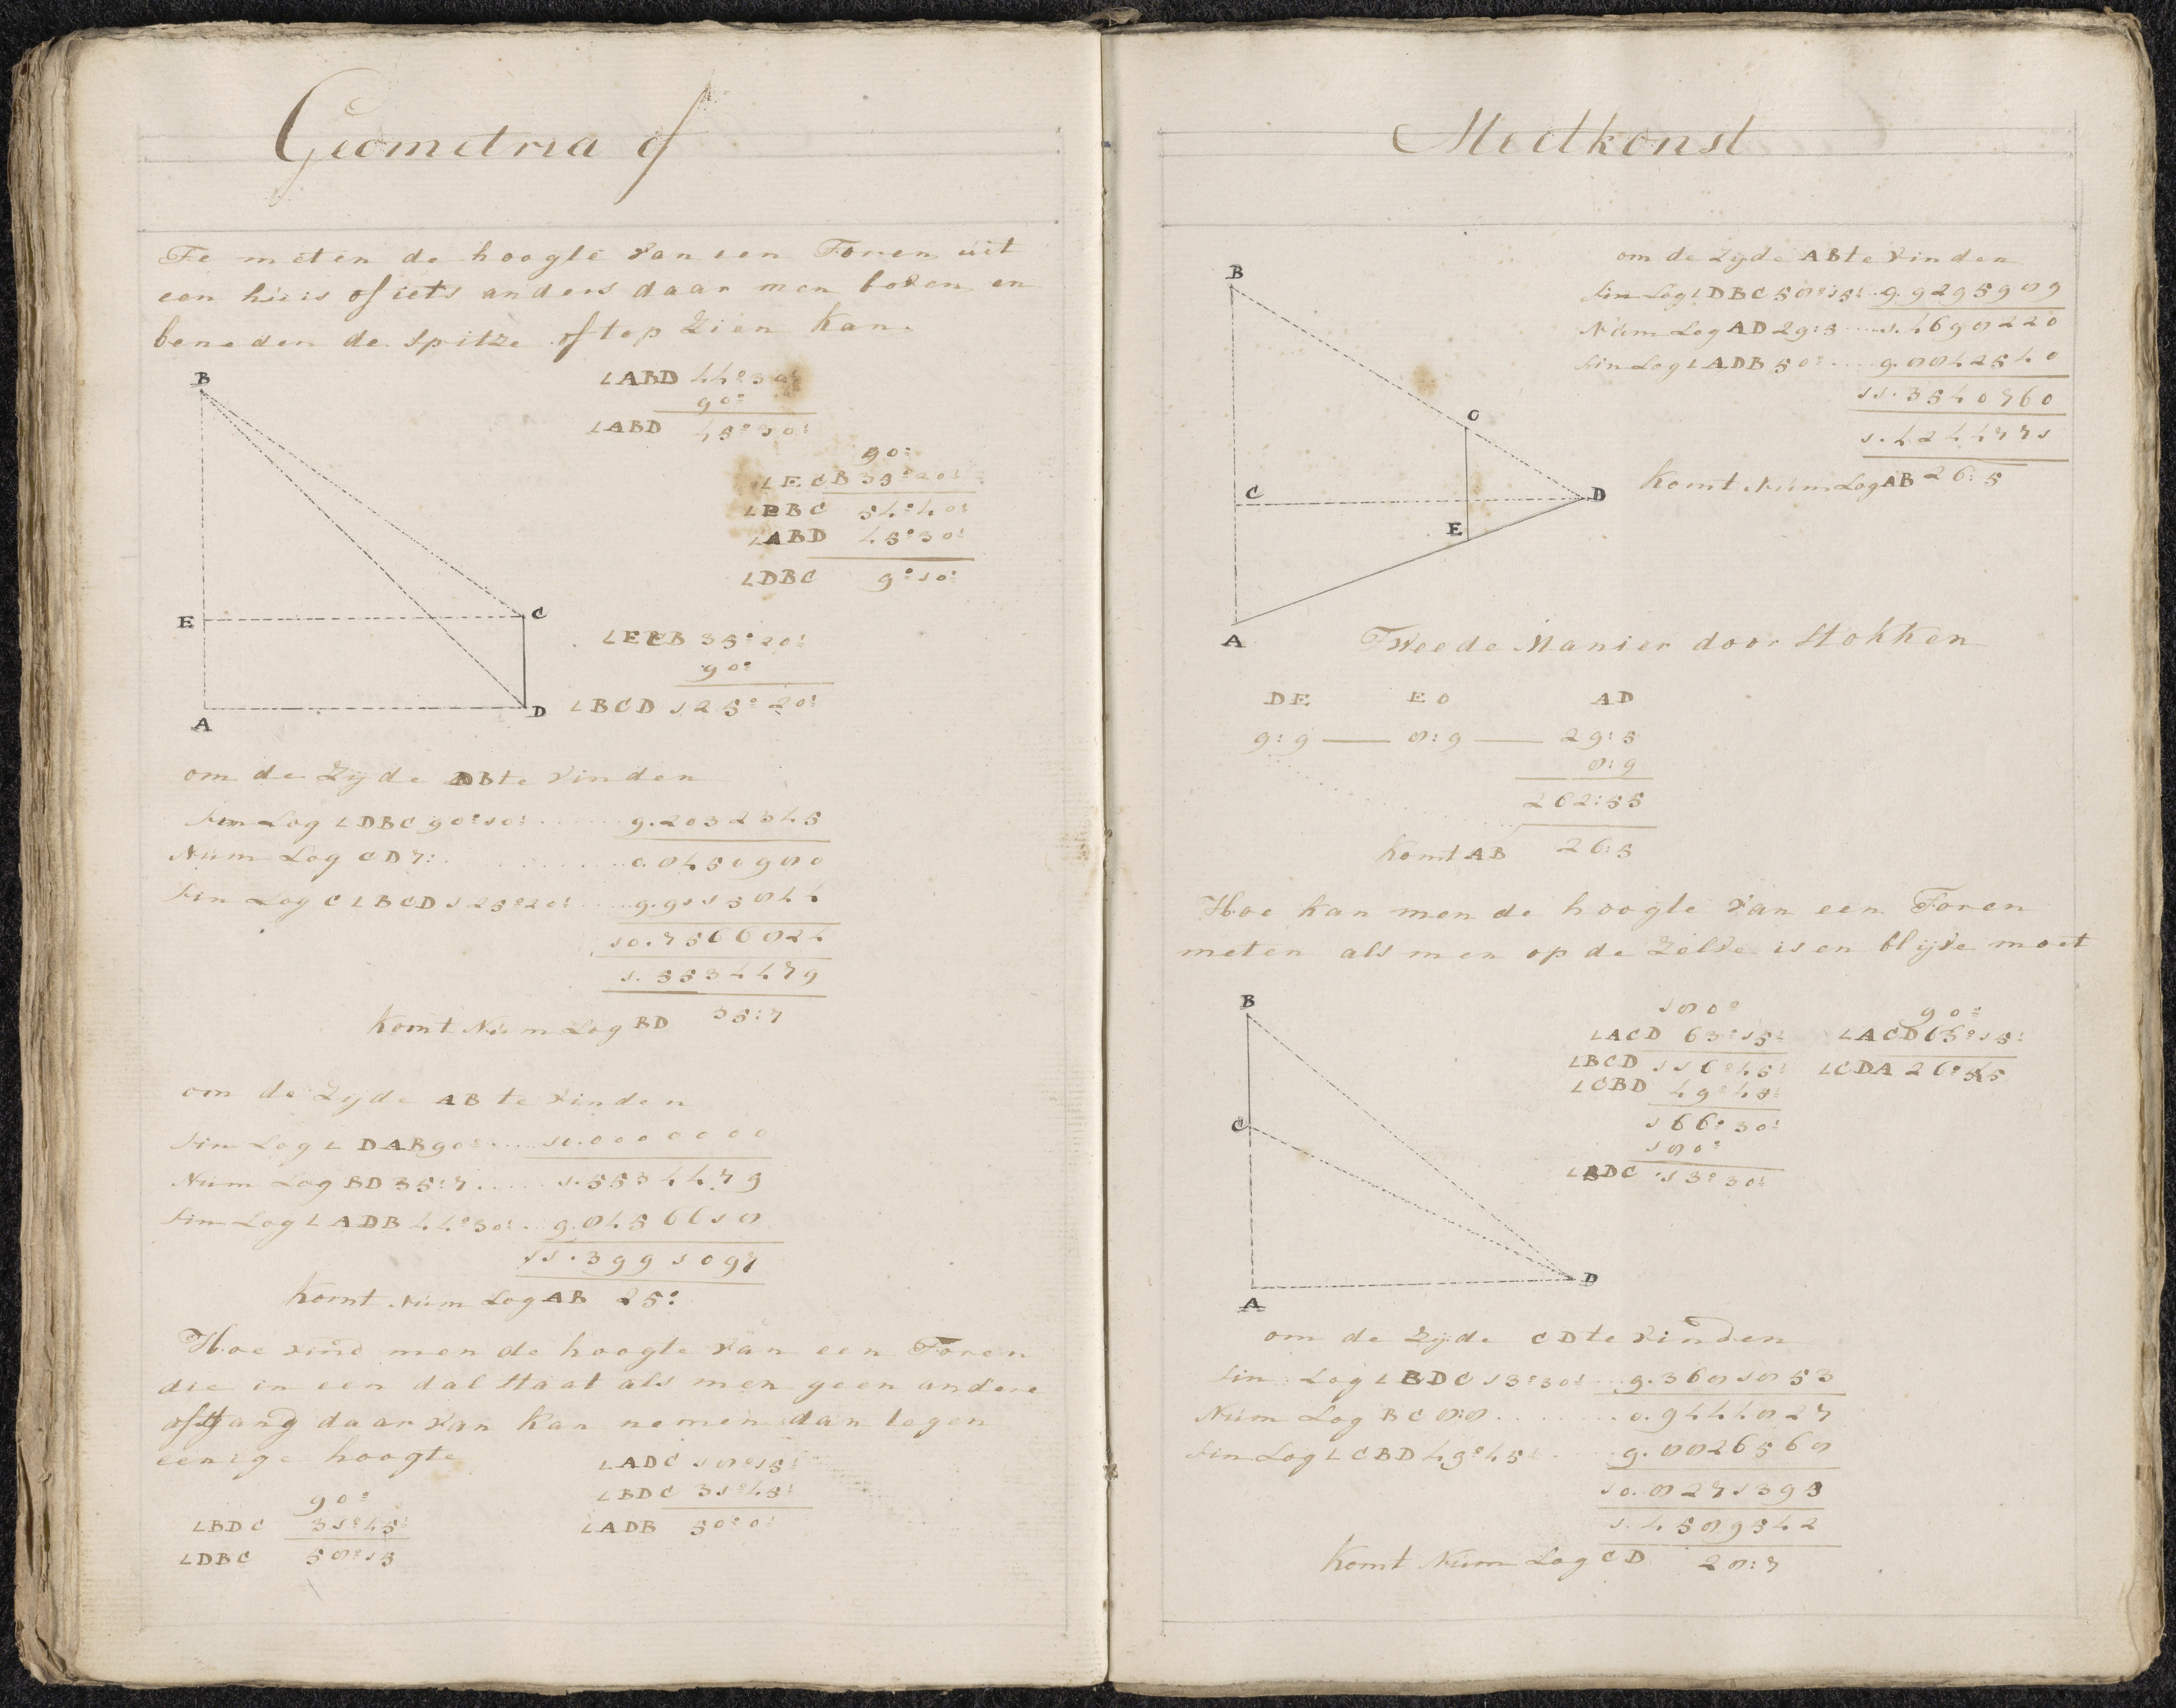 Geometria of
Te meten de hoogte van een Toren uit
een huis of iets anders daar men boven en
beneden de spitze of top Zien kan.
∠ABD 44°30'
90°
∠ABD 45°30'
90°
∠ECB 35°20'
∠EBC 54°40'
∠ABD 45°30'
∠DBC 9°10'
B
E
C
A
D
∠ECB 35°20'
90°
∠BCD 125°20'
om de Zyde DB te vinden
Sin Log ∠DBC 90°10' ...... 9.2032345
Num Log CD 7: ............ 0.8450980
Sin Log C ∠BCD 125°20' ..... 9.9115844
10.7566824
1.5534479
Komt Num Log BD 35:7
om de Zyde AB te vinden
Sin Log ∠DAB 90° .... 10.0000000
Num Log BD 35:7 ..... 1.5534479
Sin Log ∠ADB 44°30' .. 9.8456618
11.3991097
Komt Num Log AB 25:
Hoe vind men de hoogte van een Toren
die in een dal staat als men geen andere
afstand daar van kan nemen dan tegen
eenige hoogte
∠ADC 18°15'
∠BDC 31°45'
∠ADB 50°0'
90°
∠BDC 31°45'
∠DBC 58°15
Meetkonst
om de Zyde AB te vinden
Sin Log ∠DBC 58°15' .. 9.9295989
Num Log AD 29:5 .... 1.4698220
Sin Log ∠ADB 50° .... 9.8842540
11.3540760
1.4244771
Komt Num Log AB 26:5
B
O
C
D
E
A
Tweede Manier door Stokken
DE EO AD
9:9 — 8:9 — 29:5
8:9
262:55
Komt AB 26:5
Hoe kan men de hoogte van een Toren
meten als men op de Zelve is en blyve moet
B
C
A
D
180°
∠ACD 63°15'
∠BCD 116°45'
∠CBD 49°45'
166°30'
180°
∠BDC 13°30'
90°
∠ACD 63°15'
∠CDA 26°45
om de Zyde CD te vinden
Sin Log ∠BDC 13°30' ... 9.3681853
Num Log BC 8:8 ........ 0.9444827
Sin Log ∠CBD 49°45' .... 9.8826568
10.8271395
1.4589542
Komt Num Log CD 28:7